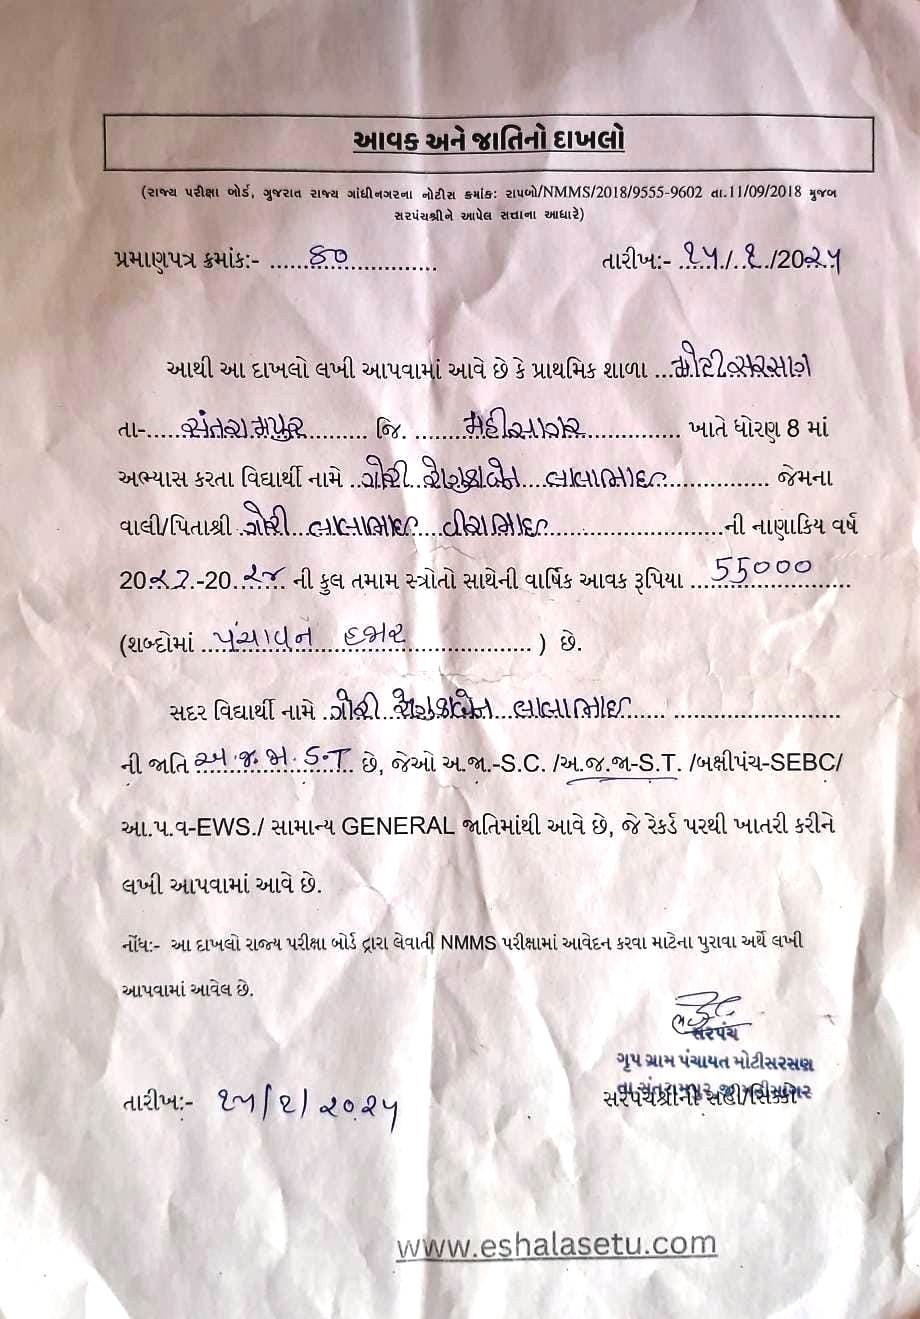 આવક અને જાતિનો દાખલો
(રાજ્ય પરીક્ષા બોર્ડ, ગુજરાત રાજ્ય ગાંધીનગરના નોટીસ ક્રમાંક: રાપબો/NMMS/2018/9555-9602 તા.11/09/2018 મુજબ
સરપંચશ્રીને આપેલ સત્તાના આધારે)
પ્રમાણપત્ર ક્રમાંક:- ......૪૦...... તારીખ:- ..૨૫../..૧../20૨૫
આથી આ દાખલો લખી આપવામાં આવે છે કે પ્રાથમિક શાળા ...મોટીસરસણ
તા-.....સંતરામપુર......... જિ. ......મહીસાગર............ ખાતે ધોરણ 8 માં
અભ્યાસ કરતા વિદ્યાર્થી નામે ..ગોરી રેણુકાબેન લાલાભાઇ............... જેમના
વાલી/પિતાશ્રી .ગોરી લાલાભાઇ વીરાભાઇ.........................ની નાણાકિય વર્ષ
20૨૩.-20.૨૪ ની કુલ તમામ સ્ત્રોતો સાથેની વાર્ષિક આવક રૂપિયા ...55000......
(શબ્દોમાં ..પંચાવન હજાર.................. ) છે.
સદર વિદ્યાર્થી નામે .ગોરી રેણુકાબેન લાલાભાઇ...... .........................
ની જાતિ અ.જ.જા. S.T છે, જેઓ અ.જા.-S.C. /અ.જ.જા-S.T. /બક્ષીપંચ-SEBC/
આ.પ.વ-EWS./ સામાન્ય GENERAL જાતિમાંથી આવે છે, જે રેકર્ડ પરથી ખાતરી કરીને
લખી આપવામાં આવે છે.
નોંધ:- આ દાખલો રાજ્ય પરીક્ષા બોર્ડ દ્વારા લેવાતી NMMS પરીક્ષામાં આવેદન કરવા માટેના પુરાવા અર્થે લખી
આપવામાં આવેલ છે.
સરપંચ
ગૃપ ગ્રામ પંચાયત મોટીસરસણ
તા.સંતરામપુર જી.મહીસાગર
તારીખ:- ૨૫/૧/૨૦૨૫ સરપંચશ્રીની સહી/સિક્કો
www.eshalasetu.com